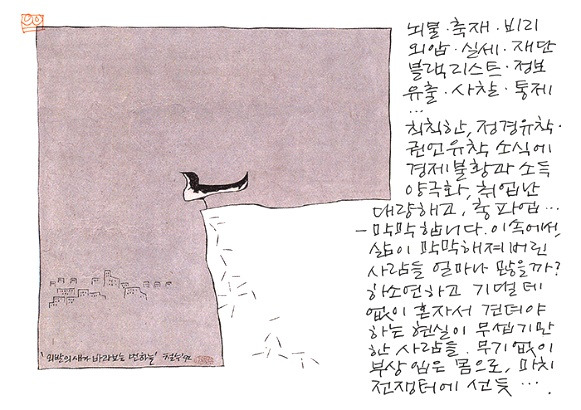 뇌물·축재·비리
외압·실세·재단
블랙리스트·정보
유출·사찰·통제
…
칙칙한, 정경유착·
권언유착 소식에
경제불황과 소득
양극화, 취업난
대량해고, 총파업…
- 막막합니다. 이 속에서,
삶이 막막해져버린
사람들 얼마나 많을까?
하소연하고 기댈 데
없이 혼자서 견뎌야
하는 현실이 무섭기만
한 사람들. 무기 없이
부상 입은 몸으로, 마치
전쟁터에 선듯….
'외발의 새가 바라보는 먼하늘' 철수 92